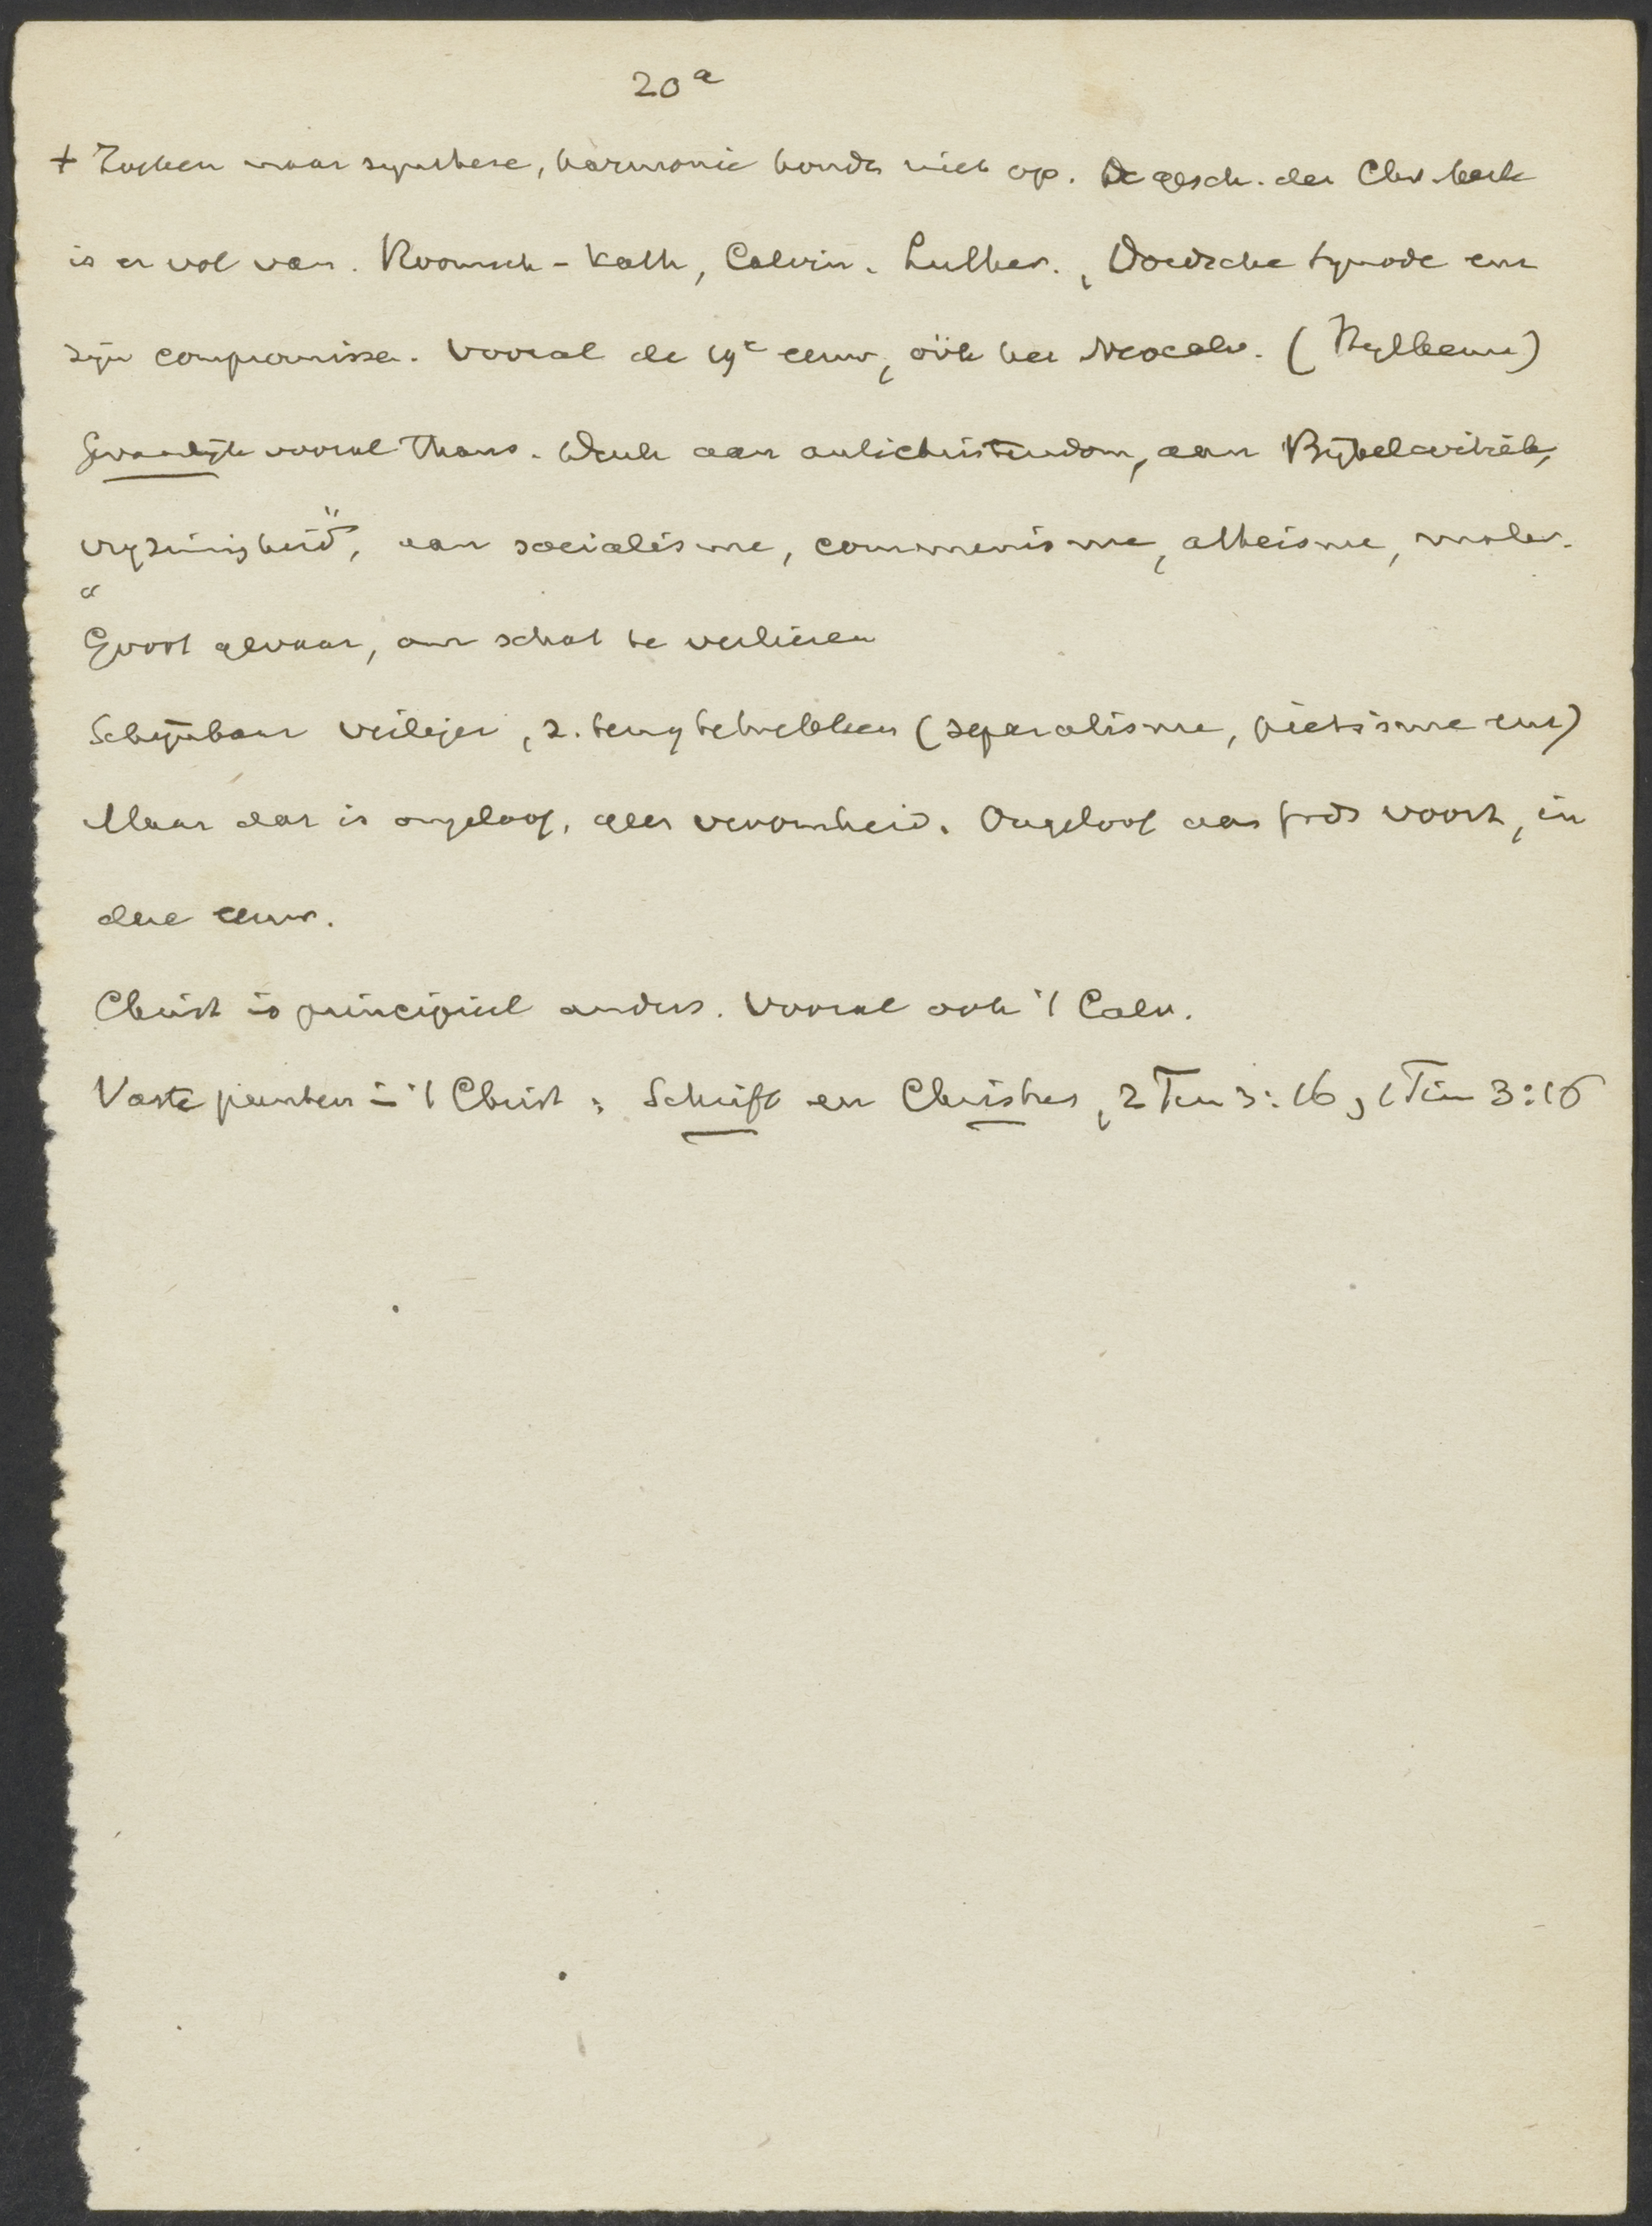 20a
+ Zoeken naar synthese, harmonie houdt niet op. De gesch. der Chr. kerk
is er vol van. Roomsch-Kath, Calvin. Luther., Dordsche Synode enz
zijn compromissen. Vooral de 19e eeuw, oök het Neocalv. (Hylkema)
Gevaarlijk vooral thans. Denk aan antichristendom, aan Bijbelcritiek,
"vrijzinnigheid", aan socialisme, communisme, atheisme, mater.
Groot gevaar, om schat te verliezen
Schijnbaar veiliger, z. terugtrekken (separatisme, pietisme enz)
Maar dat is ongeloof, geen vroomheid. Ongeloof aan voort, in
deze eeuw.
Christ is principieel anders. Vooral ook 't Calv.
Vaste punten in 't Christ: Schrift en Christus, 2 Tim 3:16, 1 Tim 3:16